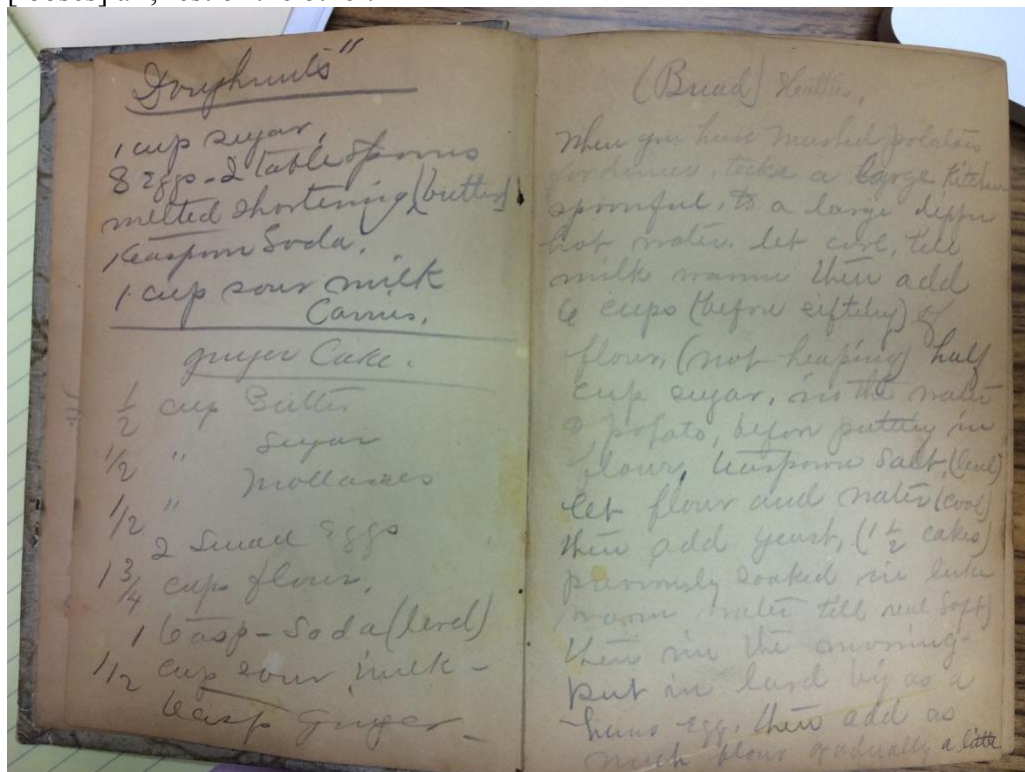 Doughnuts"
1 cup sugar,
8 Eggs - 2 table spoons
melted shortening (butter)
1 teaspoon Soda.
1 cup sour milk
Carries.
ginger Cake.
1/2 cup Butter
1/2 " Sugar
1/2 " Mollasses
2 Small Eggs
1 3/4 cups flour,
1 teasp - Soda (level)
1/2 cup sour milk -
teasp ginger -
(Bread) Hattie,
When you have mashed potatois
for dinner, take a large Kitchen
spoonful, to a large dipper
hot water. let cool, till
milk warm then add
6 cups (before sifting) of
flour, (not heaping) half
cup sugar, in the water
& potato, before putting in
flour, teaspoon Salt, (level)
let flour and water (cool)
then add yeast, (1 1/2 cakes)
previously soaked in luke
warm water till real Soft)
then in the morning -
put in lard big as a
hens egg, then add as
much flour gradually a little